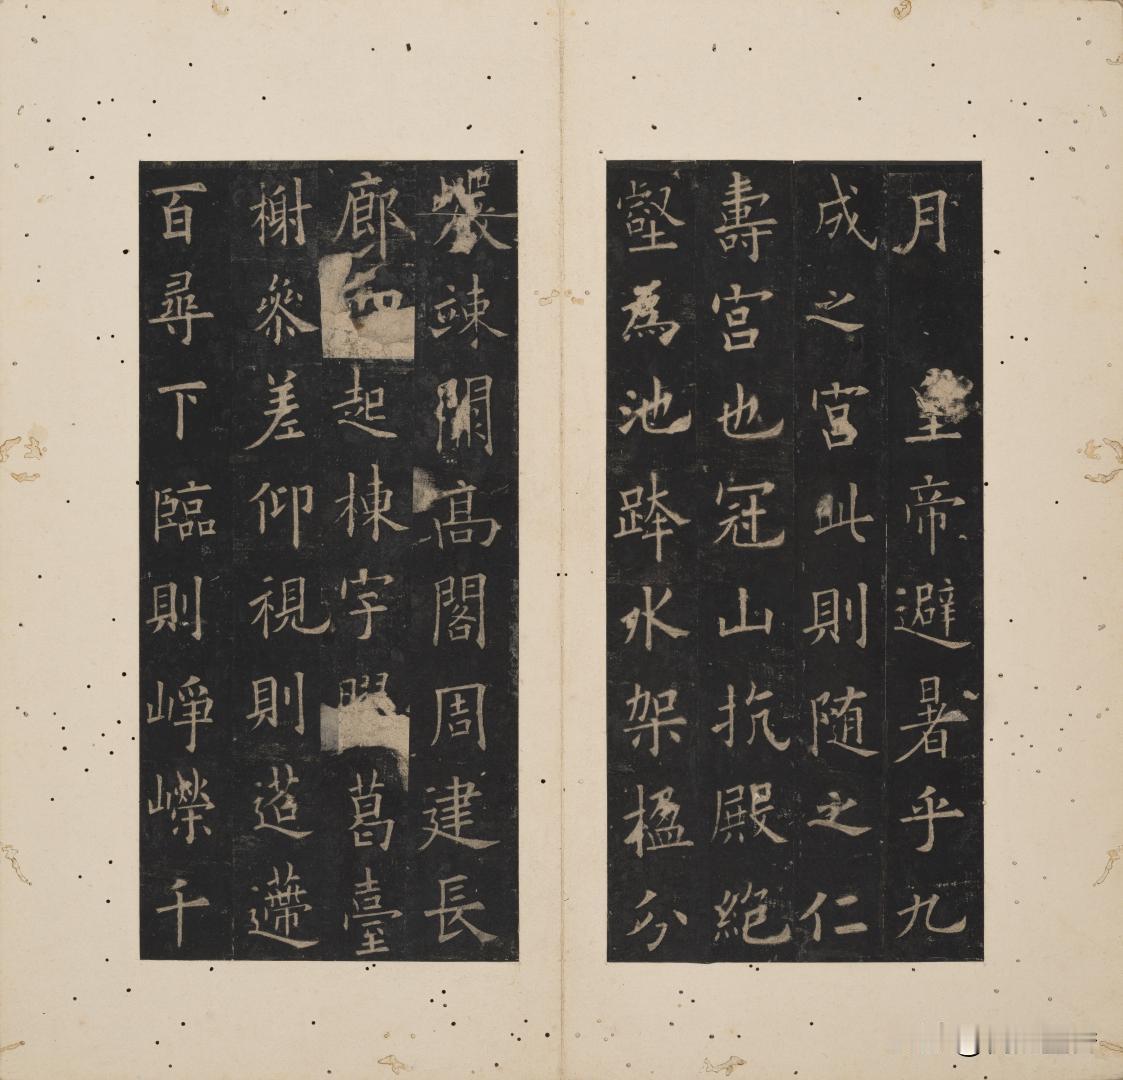 月 皇帝避暑乎九
成之宮此則随之仁
壽宮也冠山抗殿絕
壑為池跨水架楹分
巖竦闕高閣周建長
廊四起棟宇膠葛臺
榭參差仰視則迢遰
百尋下臨則崢嶸千